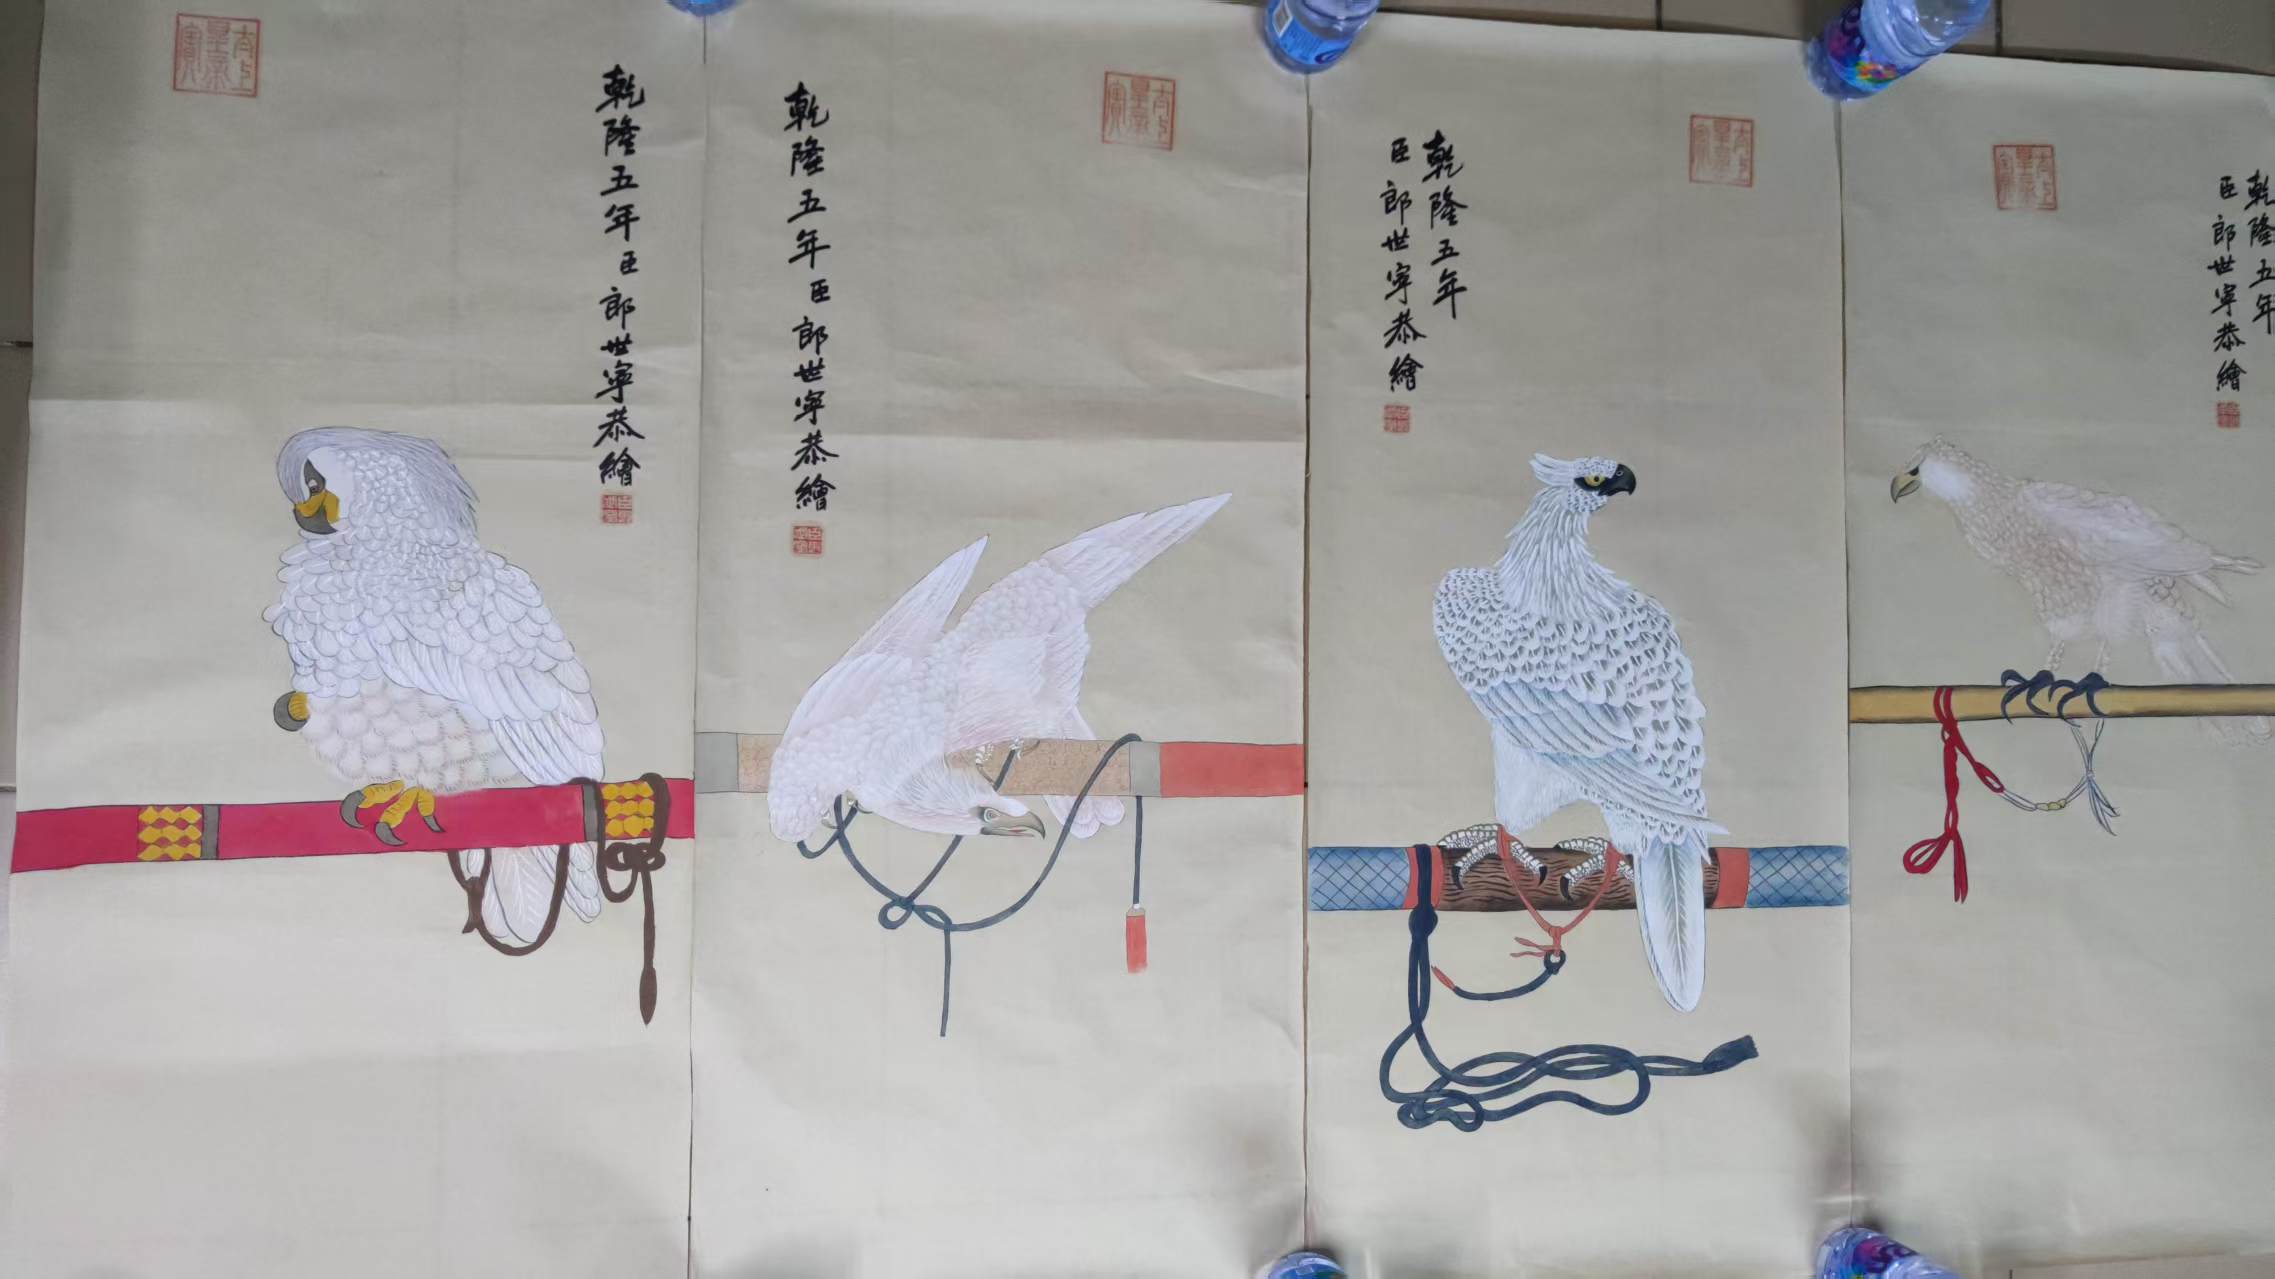 乾隆五年臣郎世寧恭繪
乾隆五年臣郎世寧恭繪
乾隆五年
臣郎世寧恭繪
乾隆五年
臣郎世寧恭繪